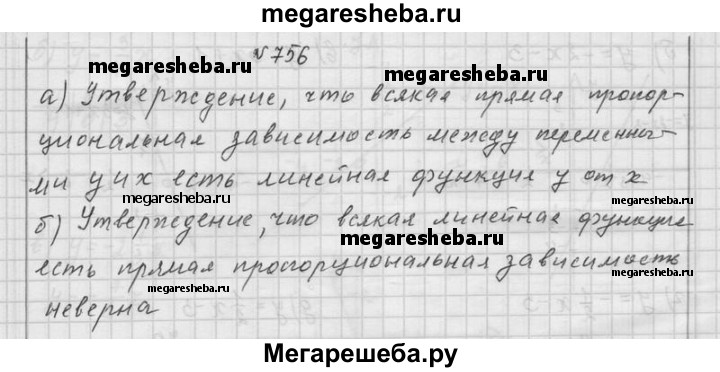 megaresheba.ru
№756
megaresheba.ru
megaresheba.ru
а) Утверждение, что всякая прямая пропор-
циональная зависимость между переменны-
ми у и х есть линейная функция у от х
megaresheba.ru
б) Утверждение, что всякая линейная функция
megaresheba.ru
есть прямая пропорциональная зависимость
megaresheba.ru
megaresheba.ru
неверна
Мегарешеба.ру